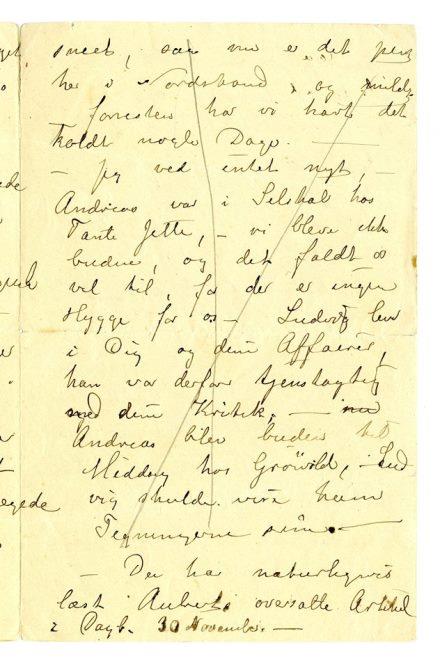 sneet, saa nu er det pent
her i Nordstrand, og mildt,
forresten har vi havt det
koldt nogle Dage. —
— Jeg ved intet nyt, —
Andreas var i Selskab hos
Tante Jette, — vi bleve ikke
budne, og det faldt os
vel til, for der er ingen
Hygge for os — Ludvig lever
i Dig og dine Affairer,
han var derfor
med din Kritik. —
Andreas blev buden til
Middag hos Grøwold, — Lud
vig skulde vise ham
Tegningerne sine. —
— Du har naturligvis
læst Auberts oversatte Artikel
i Dagb. 30 November. —